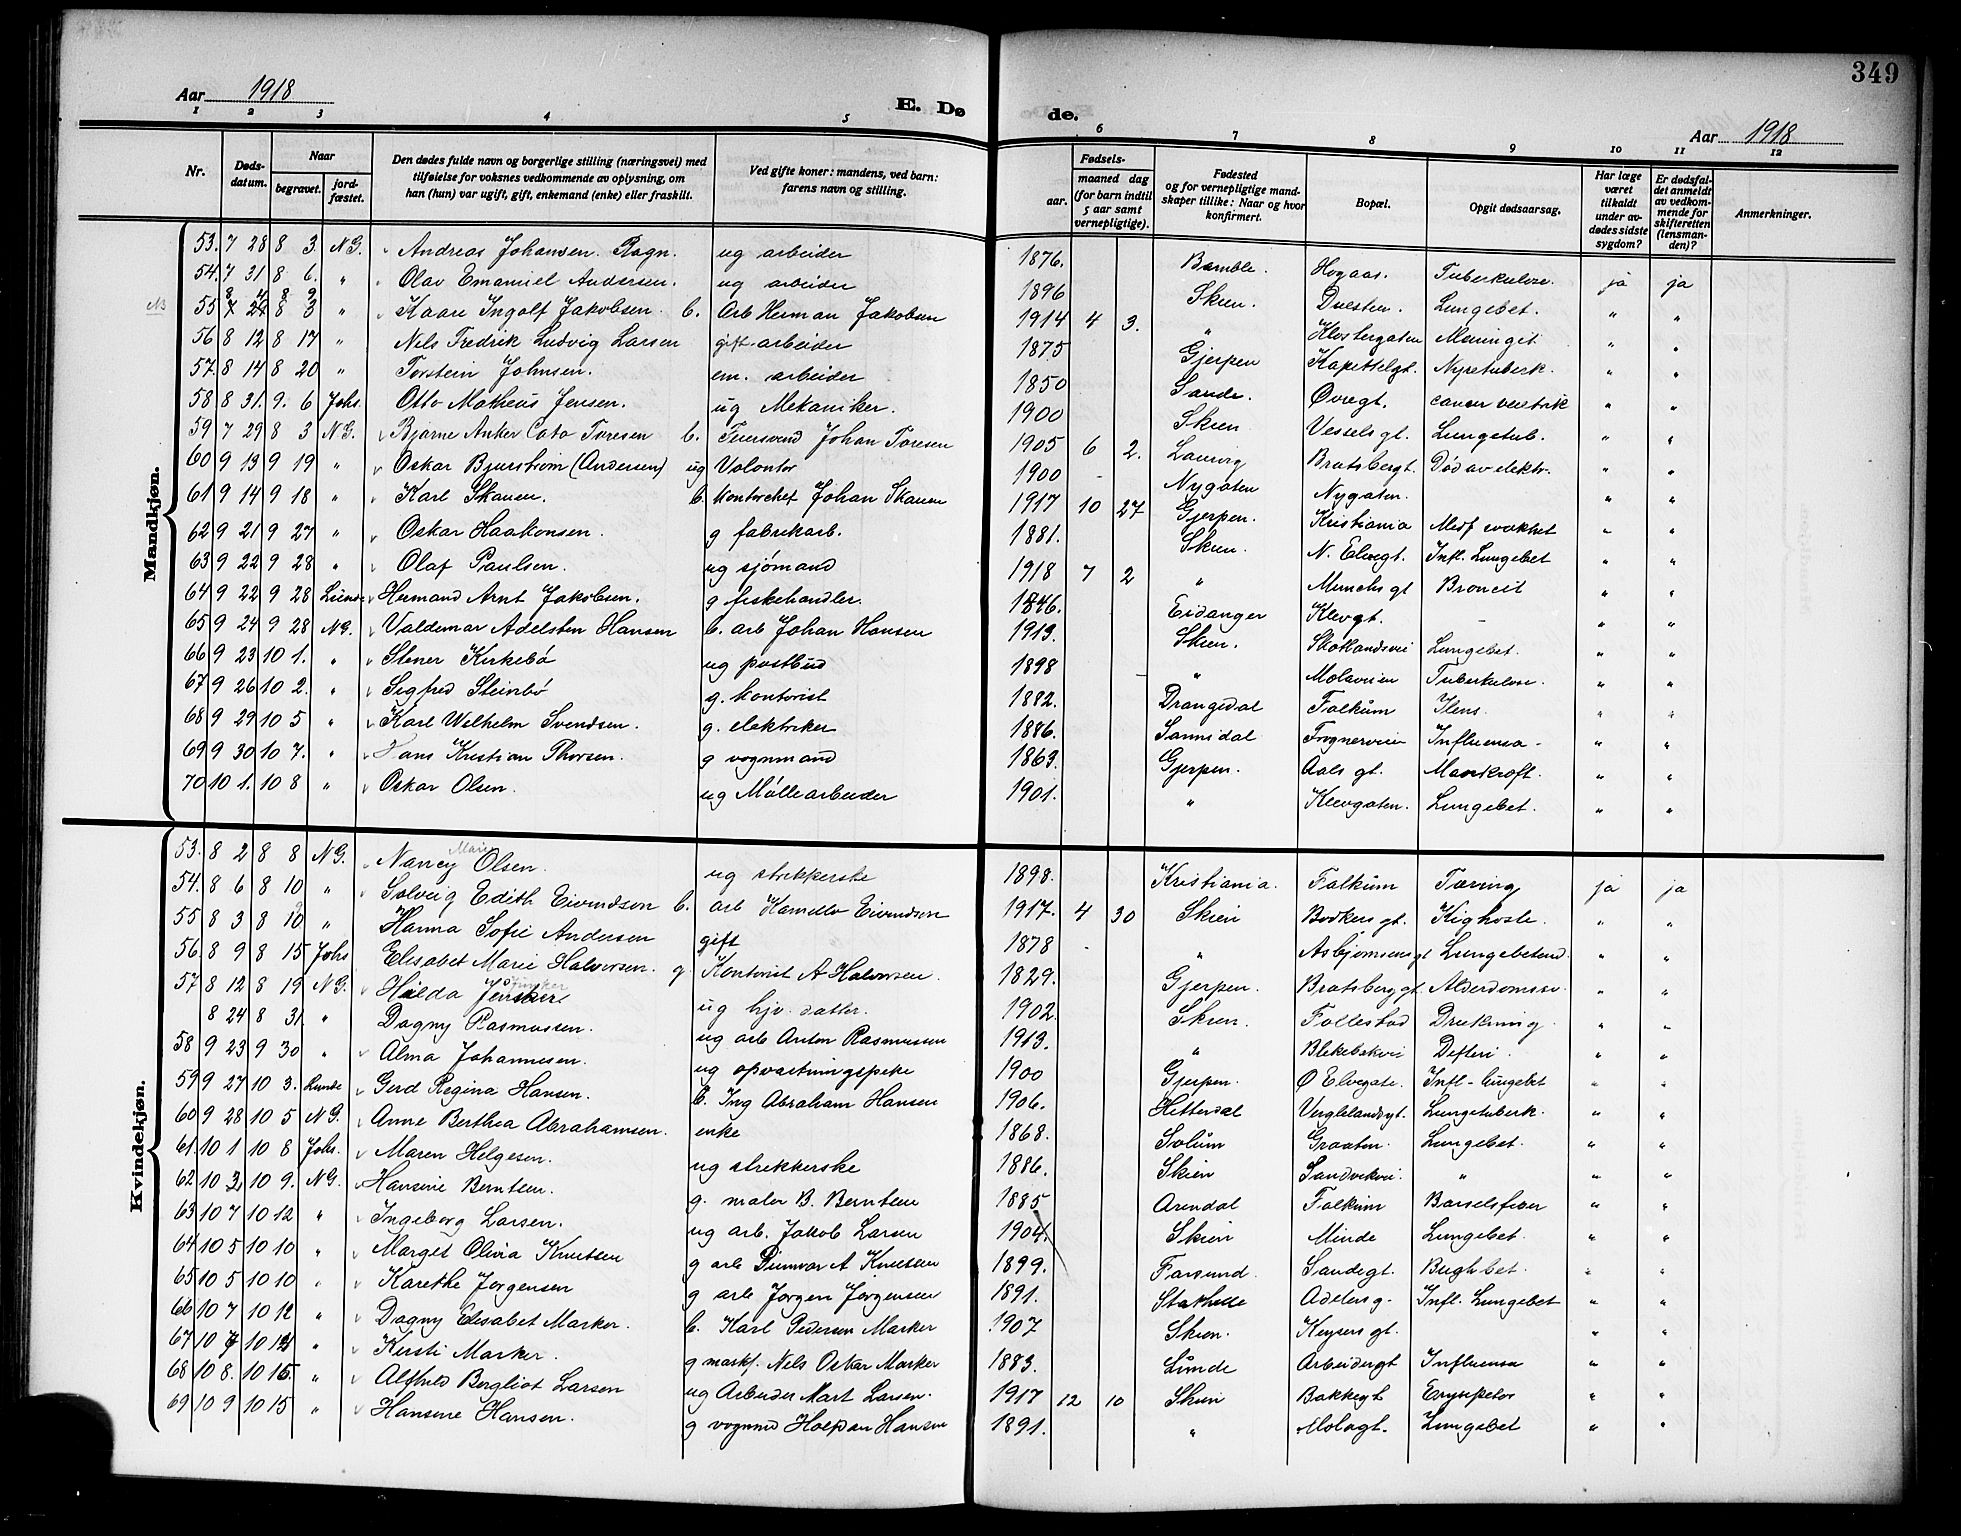 349
Aar 1918
E. Dø
de.
Aar 1918
1 2 3 4 5 6 7 8 9 10 11 12
Nr.
Døds-
datum.
Naar
begravet.
jord-
fæstet.
Den dødes fulde navn og borgerlige stilling (næringsvei) med
tilføielse for voksnes vedkommende av oplysning, om
han (hun) var ugift, gift, enkemand (enke) eller fraskilt.
Ved gifte koner: mandens, ved barn:
farens navn og stilling.
Fødsels-
aar.
maaned dag
(for barn indtil
5 aar samt
vernepligtige).
Fødested
og for vernepligtige mand-
skaper tillike: Naar og hvor
konfirmert.
Bopæl.
Opgit dødsaarsag.
Har læge
været
tilkaldt
under av-
dødes sidste
sygdom?
Er dødsfal-
det anmeldt
av vedkom-
mende for
skifteretten
(lensman-
den)?
Anmerkninger.
Mandkjøn.
53. 7 28 8 3. N G. Andreas Johansen. Ragn. ug arbeider 1876. Bamble. Hogaas. Tuberkulose. ja ja
54. 7 31 8 6. " Olav Emanuel Andersen. ug arbeider 1896 Skien. Duesten. Lungebet. " "
55 7 29 8 3 " Kaare Ingolf Jakobsen b. Arb Herman Jakobsen 1914 4 3. " Klostergaten Meningit " "
56 8 12 8 17 " Nels Fredrik Ludvig Larsen gift arbeider 1875 Gjerpen Kapittelgt. Nyretuberk. " "
57. 8 14 8 20 " Torstein Johnsen. em. arbeider 1850 Sande. Øvregt. cancer ventrik " "
58 8 31. 9. 6 Johs. Otto Matheus Jensen. ug Mekaniker. 1900 Skien Vessels gt. Lungetub. " "
59 7 29 8 3 N G. Bjarne Anker Cato Toresen b. Johan Toresen 1905 6 2. Laurvig Bratsbergt. Død av elektr. " "
60 9 13 9 19 " Oskar Bjurstrøm (Andersen) ug Volontør 1900 - Nygaten Nygaten. " "
61 9 14 9 18 " Karl Skauen. b. Kontorchef Johan Skauen 1917 10 27 Gjerpen. Kristiania Medf svakhet " "
62 9 21 9 27 " Oskar Haakonsen. g fabrikarb. 1881. Skien. N. Elvegt. Infl. Lungebet " "
63 9 22 9 28 " Olaf Paulsen. ug sjømand 1918 7 2 " Munchs gt Broncit " "
64 9 22 9 28 Lunde Hermand Arnt Jakobsen. g fiskehandler. 1846. Eidanger Klevgt. - " "
65 9 24 9 28 N G. Valdemar Adelsten Hansen b. arb Johan Hansen 1913. Skien. Skotlandsvei Lungebet. " "
66 9 23 10 1. " Stener Kirkebø ug postbud 1898 " Molaveien Tuberkulose. " "
67 9 26 10 2. " Sigfred Steinbø g. kontorist 1882. Drangedal Falkum Ilens. " "
68 9 29 10 5 " Karl Wilhelm Svendsen. g. elektriker 1886. Sannidal Frognerveien Influensa - " "
69 9 30 10 7. " Hans Kristian Thorsen. g vognmand 1863. Gjerpen. Aals gt. " "
70 10 1. 10 8 " Oskar Olsen. ug Møllearbeider 1901. " Klevgaten. Lungebet. " "
Kvindekjøn.
53. 8 2 8 8 N G. Nancy Marie Olsen. ug strikkerske 1898. Kristiania. Falkum Tæring ja ja
54. 8 6 8 10 " Solveig Edith Eivendsen b. arb Eivendsen 1917. 4 30 Skien Bødkers gt. Kighoste. " "
55 8 3 8 10 " Hanna Sofie Andersen gift 1878 - " Asbjørnsens gt Lungebetend " "
56. 8 9 8 15 Johs Elisabet Marie Halvorsen. g. Kontorist A Halvorsen. 1829. Gjerpen. Bratsberg gt. Alderdomssv. " "
57 8 12 8 19 N G. Hilda Junker ug hjv. datter. 1902. Skien. Follestad Drukning " "
8 24 8 31 " Dagny Rasmussen. ug arb Anton Rasmussen 1913. " Blekebakvei Defteri. " "
58 9 23 9 30 " Alma Johannesen. ug opvartningspike 1900 Gjerpen. Ø Elvegate. Infl - Lungebet " "
59 9 27 10 3. Lunde Gerd Regina Hansen. b. Ing Abraham Hansen 1906. Hitterdal Lungetuberk. " "
60 9 28 10 5 N G. Anne Berthea Abrahamsen. enke 1868. Solum Graaten. Lungebet. " "
61. 10 1 10 8 Johs. Maren Helgesen. ug strikkerske 1886. Skien Sandvikvei. " " "
62 10 3 10 9. N G. Hansine Berntsen. g. maler B. Berntsen 1885 Arendal Falkum Barselsfeber " "
63 10 7 10 12 " Ingeborg Larsen. ug arb. Jakob Larsen 1904. Skien Minde Lungebet. " "
64 10 5 10 10 " Margit Olivia Knutsen g arb Gunvar A Knutsen 1899. Farsund. Sandegt. Bughbet. " "
65 10 5 10 10 " Karethe Jørgensen g arb Jørgen Jørgensen 1891. Stathelle Adelers g. Infl. Lungebet " "
66 10 7 10 12 " Dagny Elisabet Marker. b. Karl Pedersen Marker 1907 Skien. Keysers gt. " "
67 10 7 10 12 " Kirsti Marker. g maskf. Nels Oskar Marker 1883. Lunde Arbeidergt Influensa " "
68 10 8. 10 15. " Alfhild Bergliot Larsen ug Arbeider Mart Larsen. 1917 12 10 Skien Bakkegt Erysipelas " "
69 10 9 10 15 " Hansine Hansen. g vognmd Halvdan Hansen 1891. " Molagt. Lungebet " "